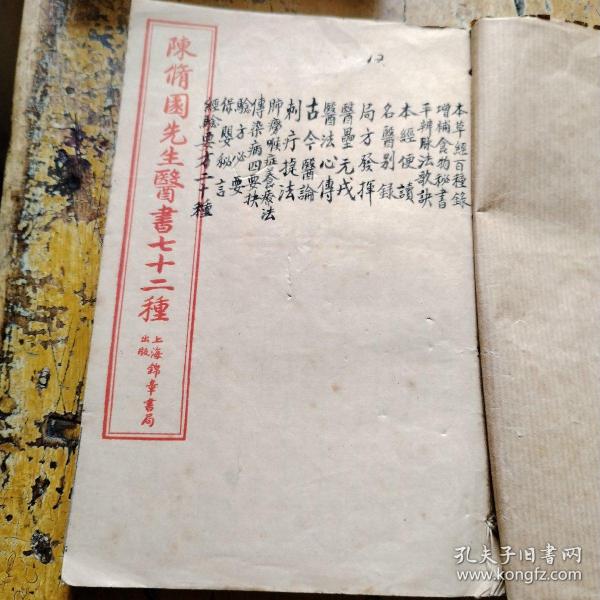 12
本草經百種錄
增補食物秘書
平辨脉法歌訣
本經便讀
名醫別錄
局方發揮
醫壘元戎
醫法心傳
古今醫論
刺疔捷法
肺癆喉症善療法
傳染病四要抉
驗子必要
保嬰秘言
經驗要方二十種
陳脩園先生醫書七十二種
上海錦章書局出版
孔夫子旧书网
www.kongfz.com